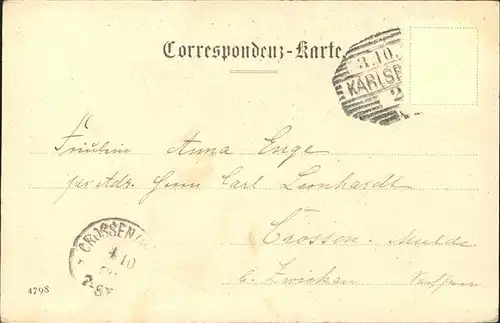 Correspondenz-Karte
3.10.
KARLSB
2
Fräulein Anna Enge
per Adr. Herrn Carl Leonhardt
Crossen-Mulde
b. Zwickau Sachsen
CROSSEN
4 10
4798